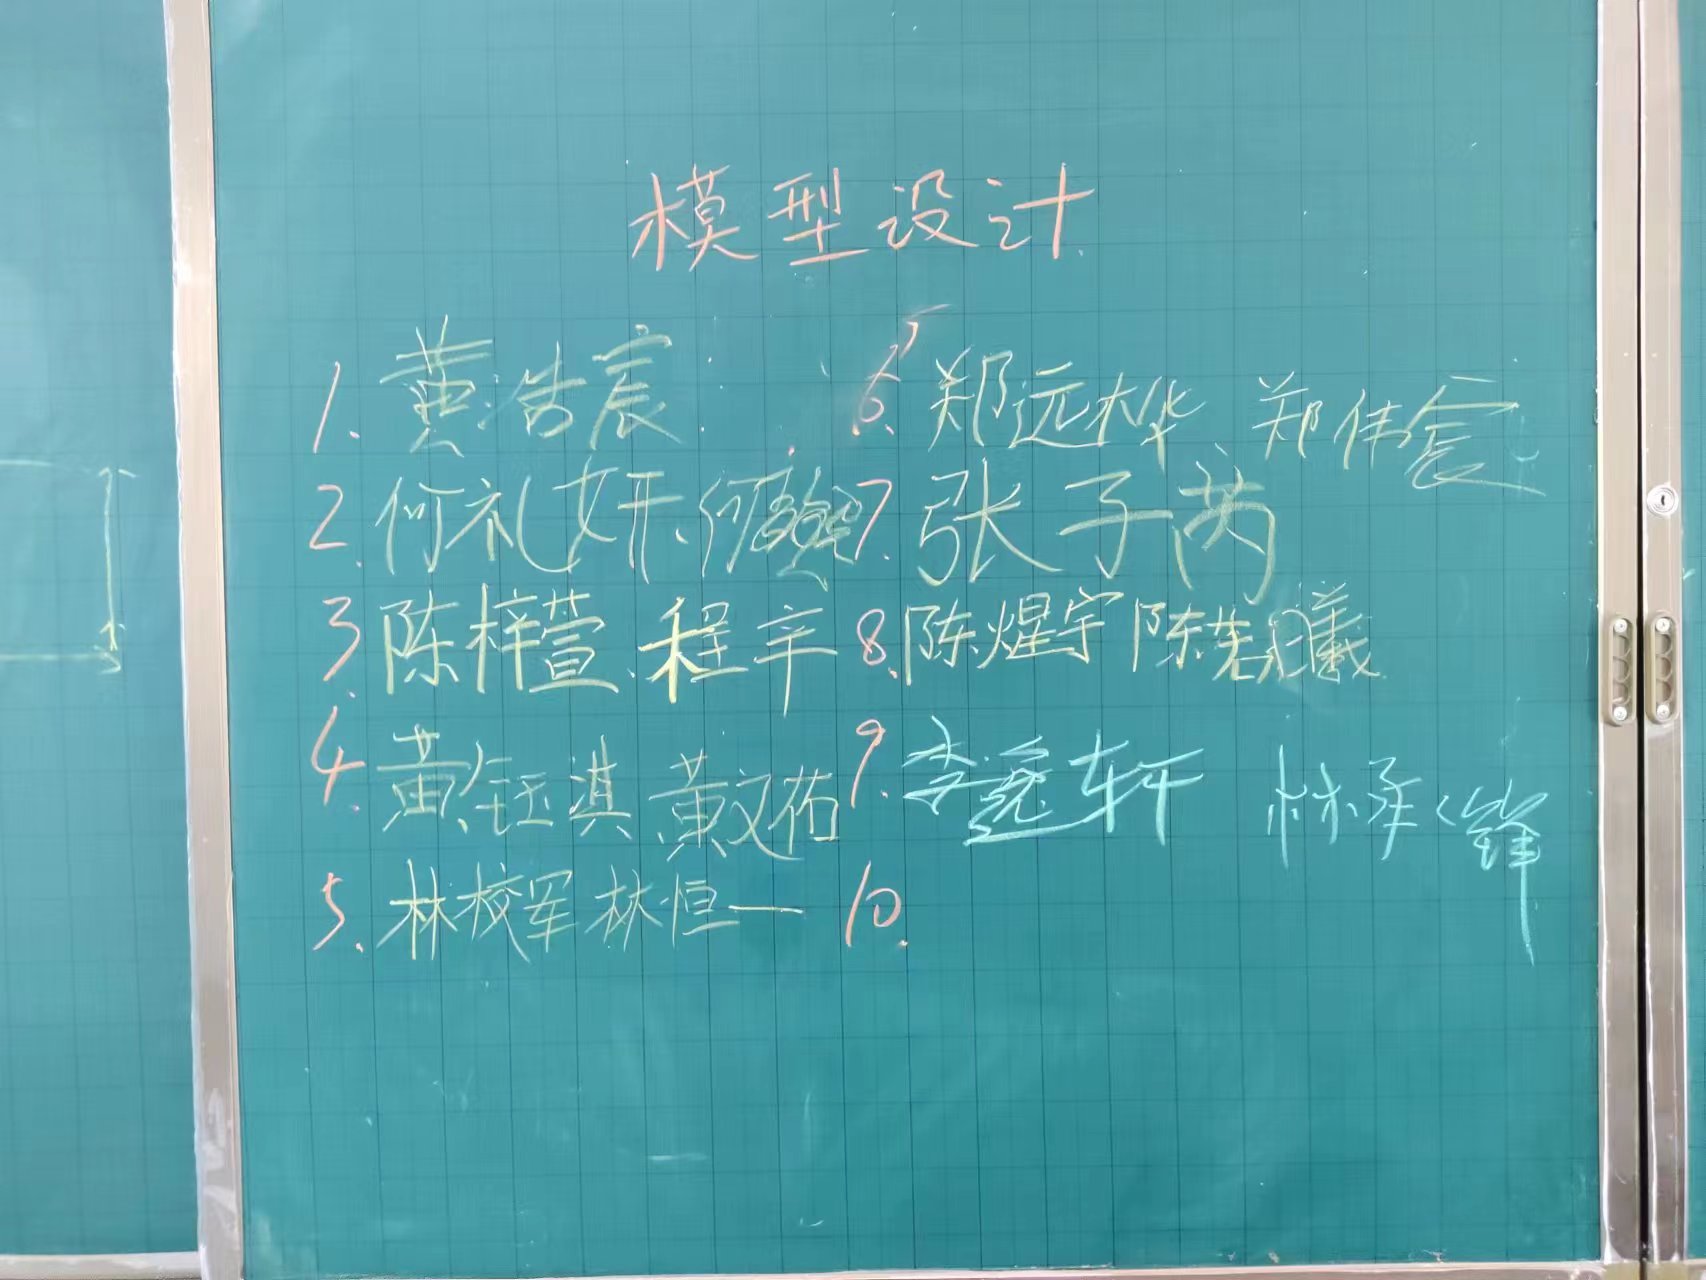 模型设计
1. 黄浩宸
2. 何礼妍、何
3. 陈梓萱、程辛
4. 黄钰淇 黄文祐
5. 林校军 林恒一
6. 郑远桦 郑伟宸
7. 张子芮
8. 陈煋宇 陈若曦
9. 李远轩 林承锋
10.